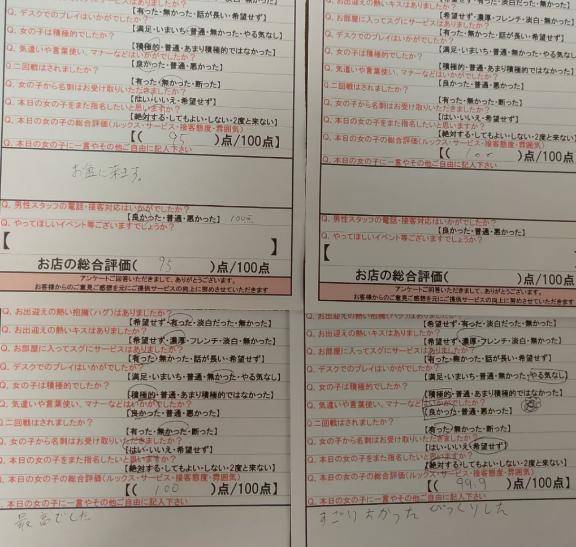 Q. デスクでのプレイはいかがでしたか?
【有った・無かった・話が長い・希望せず】
Q. 女の子は積極的でしたか?
【満足・いまいち・普通・無かった・やる気なし】
Q. 気遣いや言葉使い、マナーなどはいかがでしたか?
【積極的・普通・あまり積極的ではなかった】
Q二回戦はされましたか?
【良かった・普通・悪かった】
Q. 女の子から名刺はお受け取りいただきましたか?
【有った・無かった・断った】
Q. 本日の女の子をまた指名したいと思いますか?
【はい・いいえ・希望せず】
【絶対する・してもよい・しない・2度と来ない】
Q. 本日の女の子の総合評価(ルックス・サービス・接客態度・雰囲気)
【( 95 )点/100点】
Q. 本日の女の子に一言やその他ご自由に記入下さい
お盆に来ます。
Q. 男性スタッフの電話・接客対応はいかがでしたか?
【良かった・普通・悪かった】 100点
Q. やってほしいイベント等ございますでしょうか?
お店の総合評価( 95 )点/100点
アンケートご回答いただきまして、ありがとうございます。
お客様からのご意見ご感想を元にご提供サービスの向上に努めさせていただきます
Q. お部屋に入ってスグにサービスはありましたか?
【希望せず・濃厚・フレンチ・淡白・無かった】
Q. デスクでのプレイはいかがでしたか?
【有った・無かった・話が長い・希望せず】
Q. 女の子は積極的でしたか?
【満足・いまいち・普通・無かった・やる気なし】
Q. 気遣いや言葉使い、マナーなどはいかがでしたか?
【積極的・普通・あまり積極的ではなかった】
Q二回戦はされましたか?
【良かった・普通・悪かった】
Q. 女の子から名刺はお受け取りいただきましたか?
【有った・無かった・断った】
Q. 本日の女の子をまた指名したいと思いますか?
【はい・いいえ・希望せず】
【絶対する・してもよい・しない・2度と来ない】
Q. 本日の女の子の総合評価(ルックス・サービス・接客態度・雰囲気)
【( 100 )点/100点】
Q. 本日の女の子に一言やその他ご自由に記入下さい
Q. 男性スタッフの電話・接客対応はいかがでしたか?
【良かった・普通・悪かった】
Q. やってほしいイベント等ございますでしょうか?
お店の総合評価( )点/100点
アンケートご回答いただきまして、ありがとうございます。
お客様からのご意見ご感想を元にご提供サービスの向上に努めさせていただきます
Q. お出迎えの熱い抱擁(ハグ)はありましたか?
【希望せず・有った・淡白だった・無かった】
Q. お出迎えの熱いキスはありましたか?
【希望せず・濃厚・フレンチ・淡白・無かった】
Q. お部屋に入ってスグにサービスはありましたか?
【有った・無かった・話が長い・希望せず】
Q. デスクでのプレイはいかがでしたか?
【満足・いまいち・普通・無かった・やる気なし】
Q. 女の子は積極的でしたか?
【積極的・普通・あまり積極的ではなかった】
Q. 気遣いや言葉使い、マナーなどはいかがでしたか?
【良かった・普通・悪かった】
Q二回戦はされましたか?
【有った・無かった・断った】
Q. 女の子から名刺はお受け取りいただきましたか?
【はい・いいえ・希望せず】
Q. 本日の女の子をまた指名したいと思いますか?
【絶対する・してもよい・しない・2度と来ない】
本日の女の子の総合評価(ルックス・サービス・接客態度・雰囲気)
【( 100 )点/100点】
本日の女の子に一言やその他ご自由に記入下さい
最高でした
Q. お出迎えの熱い抱擁(ハグ)はありましたか?
【希望せず・有った・淡白だった・無かった】
Q. お出迎えの熱いキスはありましたか?
【希望せず・濃厚・フレンチ・淡白・無かった】
Q. お部屋に入ってスグにサービスはありましたか?
【有った・無かった・話が長い・希望せず】
Q. デスクでのプレイはいかがでしたか?
【満足・いまいち・普通・無かった・やる気なし】
Q. 女の子は積極的でしたか?
【積極的・普通・あまり積極的ではなかった】
Q. 気遣いや言葉使い、マナーなどはいかがでしたか?
【良かった・普通・悪かった】
Q二回戦はされましたか?
【有った・無かった・断った】
Q. 女の子から名刺はお受け取りいただきましたか?
【はい・いいえ・希望せず】
Q. 本日の女の子をまた指名したいと思いますか?
【絶対する・してもよい・しない・2度と来ない】
Q. 本日の女の子の総合評価(ルックス・サービス・接客態度・雰囲気)
【( 99.9 )点/100点】
Q. 本日の女の子に一言やその他ご自由に記入下さい
びっくりした